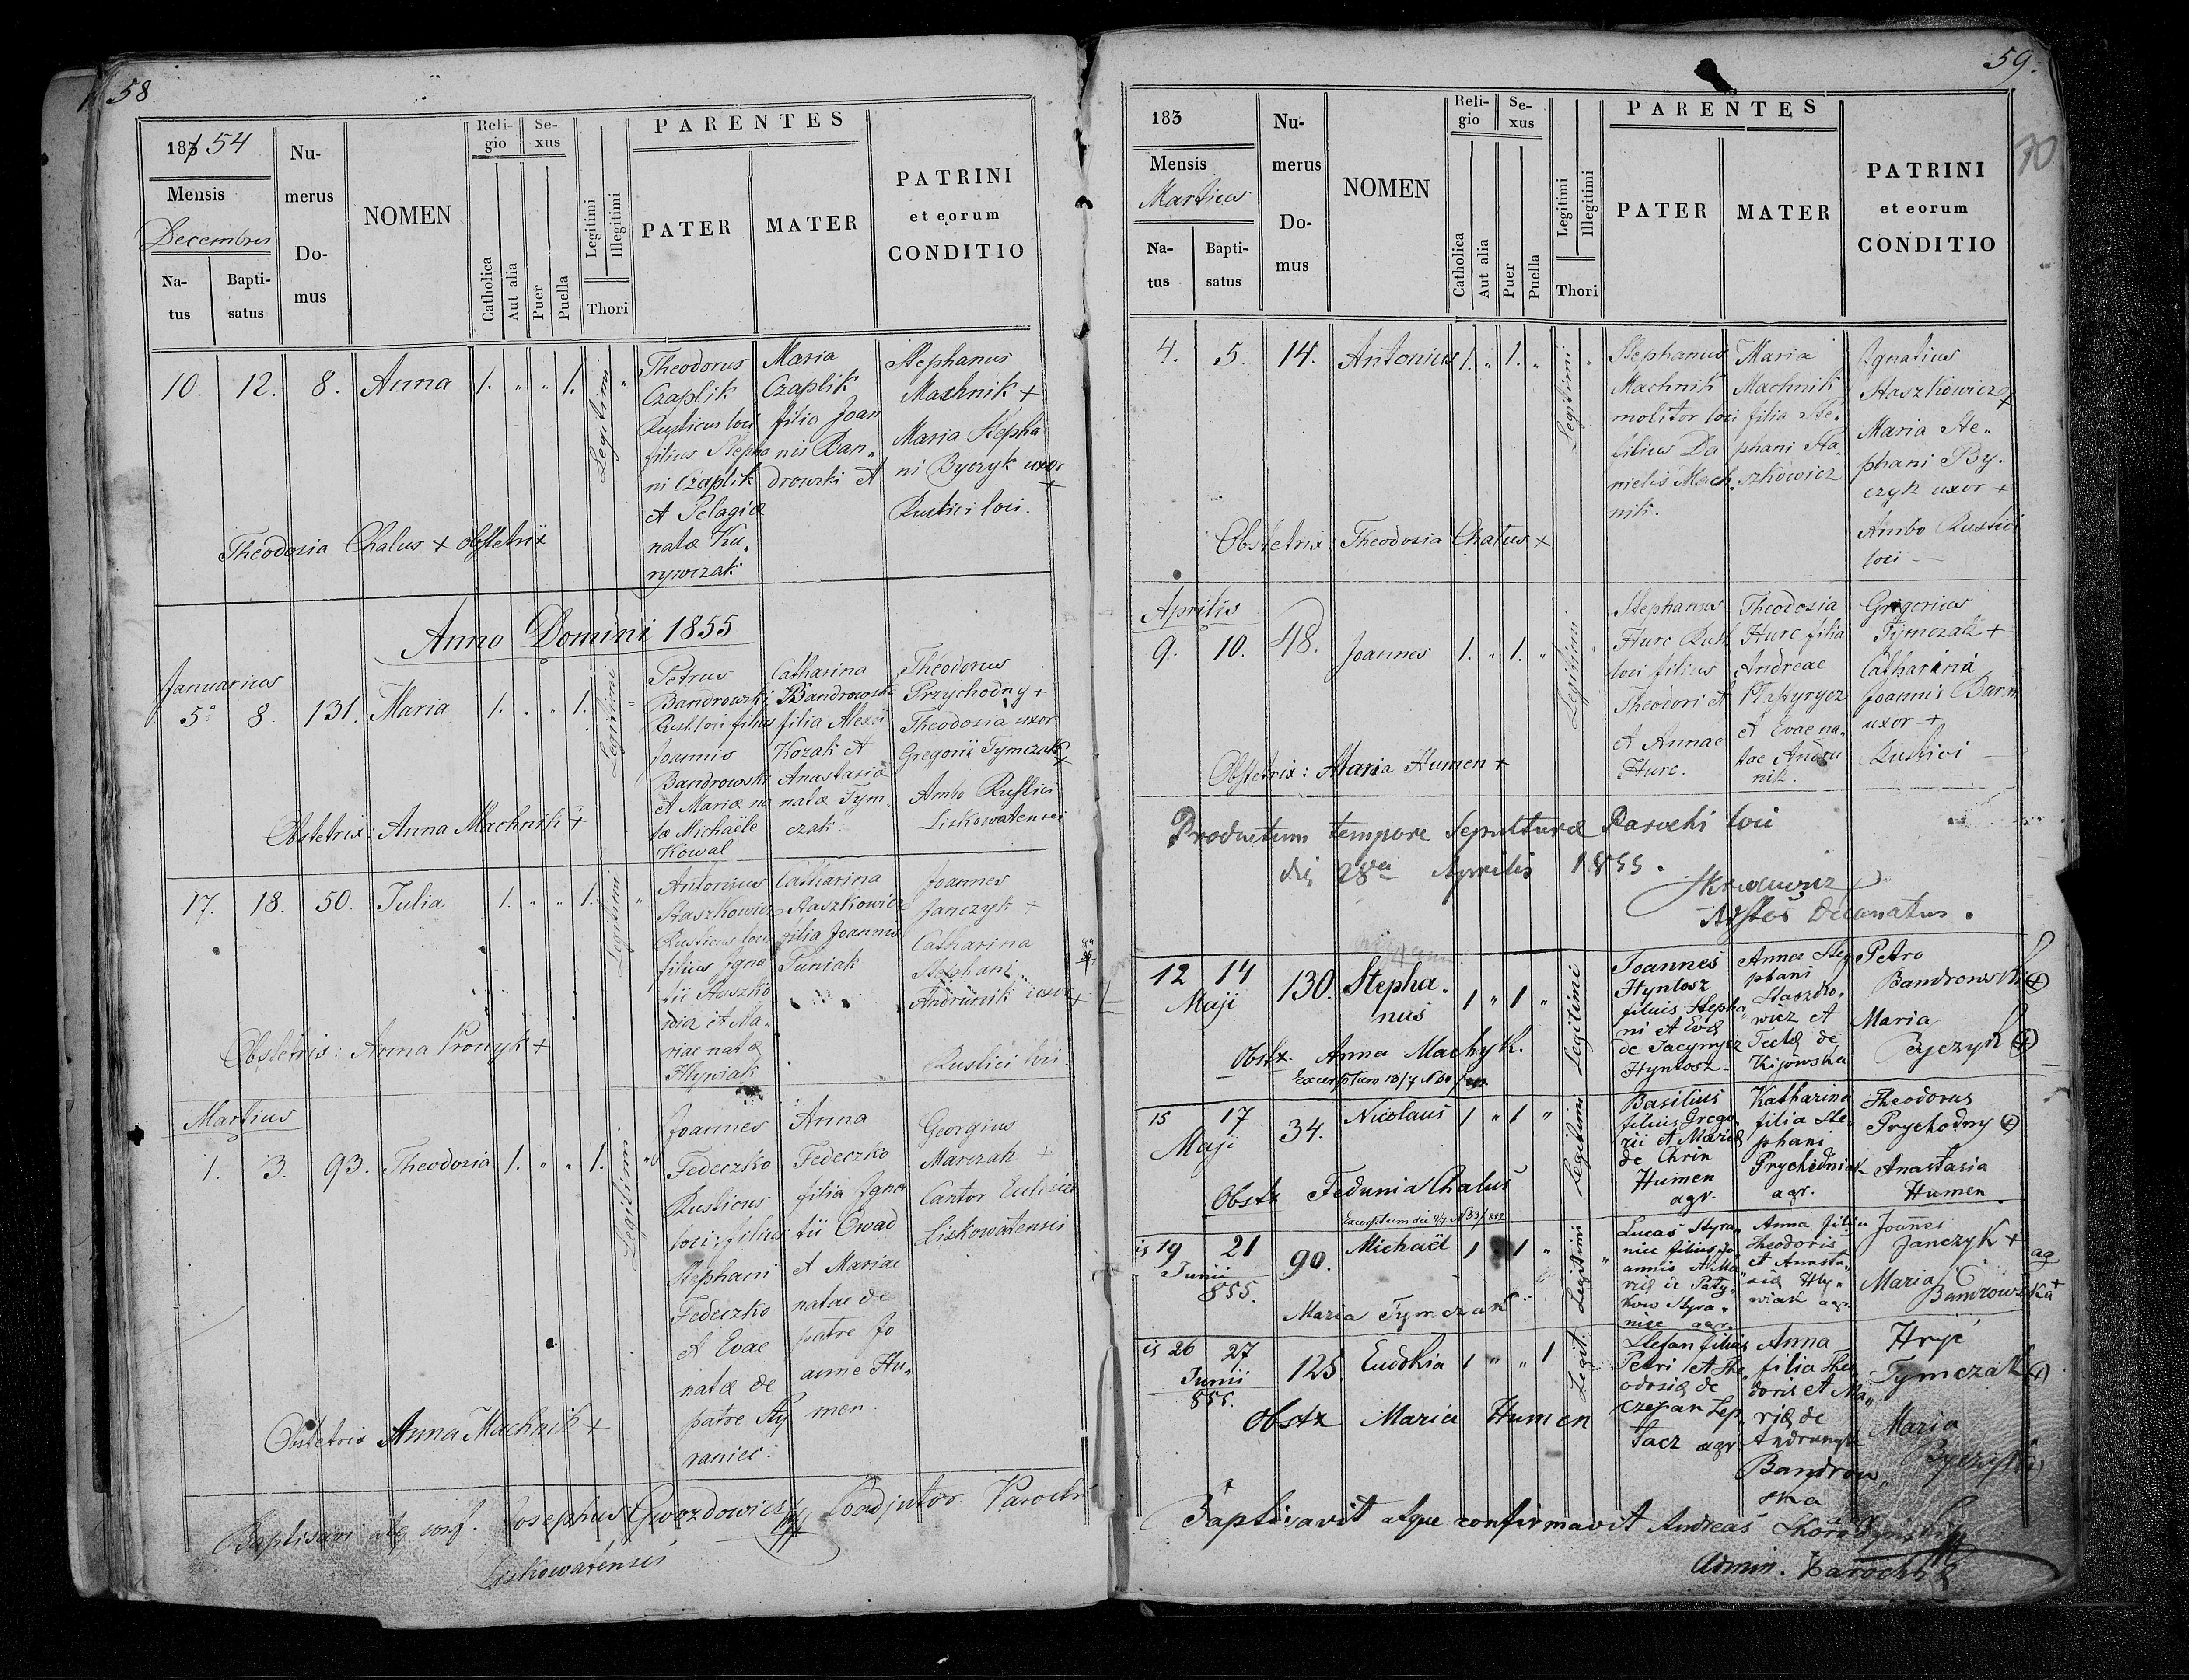 58
18354
Mensis
Decembris
Na-
tus
Bapti-
satus
Nu-
merus
Do-
mus
NOMEN
Reli-
gio
Catholica
Aut alia
Se-
xus
Puer
Puella
Legitimi
Illegitimi
Thori
PARENTES
PATER
MATER
PATRINI
et eorum
CONDITIO
10. 12. 8. Anna 1. " " 1. Legitimi "
Theodorus
Czaplik
Rusticus loci
filius Stepha
ni Czaplik
et Pelagiæ
natæ Ku„
rywczak
Maria
Czaplik
filia Joan
nis Ban„
drowski et
Stephanus
Machnik +
Maria Stepha
ni Byczyk uxor
+
Rustici loci.
Theodosia Chalus + obstetrix
Anno Domini 1855
Januarius
5º 8. 131. Maria 1. " " 1. Legitimi "
Petrus
Bandrowski
Rust. loci filius
Joannis
Bandrowski
et Mariæ na
tæ Michaële
Kowal
Catharina
Bandrowsk
filia Alexii
Kozak et
Anastasiæ
natæ Tym„
czak.
Theodorus
Przychodny +
Theodosia uxor
Gregorii Tymczak
+
Ambo Rustici
Liskowatensei
Obstetrix: Anna Machnik +
17. 18. 50. Julia 1. " " 1. Legitimi "
Antonius
Staszkowicz
Rusticus loci
filius Igna
tii Staszko
wicz et Ma„
riae natæ
Hlywiak
Catharina
Staszkowicz
filia Joannis
Puniak
Joannes
Janczyk +
Catharina
Stephani
Andrunik uxor
+
Rustici loci.
Obstetris: Anna Pronyk +
Martius
1. 3. 93. Theodosia 1. " " 1. Legitimi "
Joannes
Fedeczko
Rusticus
loci, filius
Stephani
Fedeczko
et Evae
natæ de
patre Sty
raniec.
Anna
Fedeczko
filia Igna
tii Cwad
et Mariae
natae de
patre Jo
anne Hu„
men.
Georgius
Marczak +
Cantor Ecclesiæ
Liskowatensis
Obstetris Anna Machnik +
Baptisavi atq conf. Josephus Gwozdowicz Coadjutor Parochi
Liskowatensis
59.
70
183
Mensis
Martius
Na-
tus
Bapti-
satus
Nu-
merus
Do-
mus
NOMEN
Reli-
gio
Catholica
Aut alia
Se-
xus
Puer
Puella
Legitimi
Illegitimi
Thori
PARENTES
PATER
MATER
PATRINI
et eorum
CONDITIO
4. 5. 14. Antonius 1. " 1. " Legitimi "
Stephanus
Machnik
molitor loci
filius Da
nielis Mach„
nik.
Maria
Machnik
filia Ste„
phani Sta„
szkowicz
Ignatius
Staszkowicz
+
Maria Ste„
phani By„
czyk uxor +
Ambo Rustici
loci —
Obstetrix: Theodosia Chalus +
Aprilis
9. 10. 48. Joannes 1. " 1. " Legitimi
Stephanus
Hurc Rust.
loci filius
Theodori et
et Annae
Hurc.
Theodosia
Hurc filia
Andreae
et Evae na„
tae Andru
nik.
Grigorius
Tymczak +
Catharina
Joannis Barn
uxor +
Rustici —
Obstetrix: Maria Humen +
Productum tempore Sepulturæ Parochi loci
die 28va Aprilis 1855.
Decanatus.
12 14
Maji
130. Stepha„
nus 1 " 1 " Legitimi
Joannes
Hyntosz
filius Stepha„
ni et Evæ
de Jacynycz
Hyntosz-
Anna Ste„
phani
Staszko„
wicz et
Teclæ de
Kijowska
Petro
Bandrowski +
Maria
Byczyk +
Obstx. Anna Machyk.
15 17
Maji
34. Nicolaus 1 " 1 " Legitimi
Basilius
filius Grego„
rii et Mariæ
de Chrin
Humen
agr.
Katharina
filia Ste„
phani
Prychidniak
agr.
Theodorus
Prychodny +
Anastasia
Humen
Obstx Fedunia Chalus
is 19 21
Junii
855.
90. Michaël 1 " 1 " Legitimi "
Lucas Styra„
niec filius Jo„
annis et Ma„
riæ de Paty„
kow Styra„
niec agr.
Anna filia
Theodoris
et Anasta„
siæ Hly„
wiak agr.
Joannes
Janczyk +
Maria
Bandrowska +
ag
Maria Tymczak
is 26 27
Junii
855.
125. Eudokia 1 " " 1 Legit.
Stefan filius
Petri et The„
odosiæ de
Czepan Lep„
kacz agr
Anna
filia Theo„
doris et Ma„
riæ de
Andrunyk
Bandrow„
ska
Hryć
Tymczak +
Maria
Byczyk
Obstx Maria Humen
Baptisavit atque confirmavit Andreas Skorodynski
Admin. Parochiæ